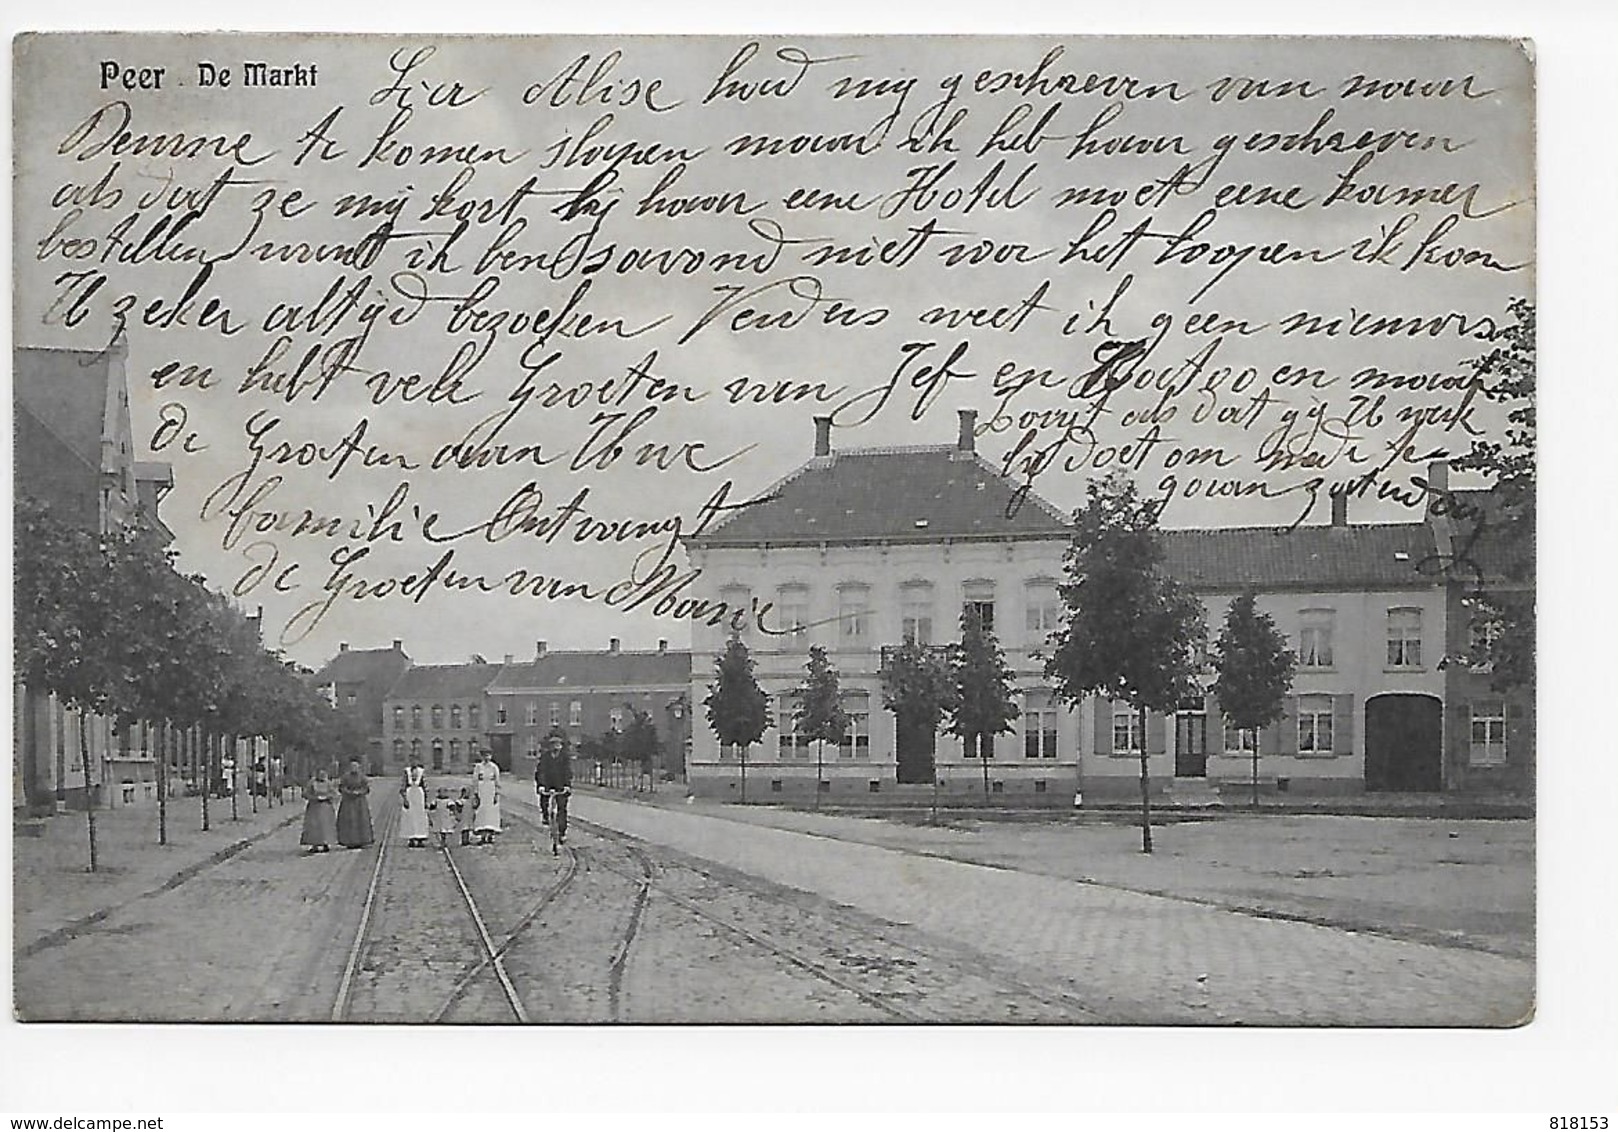 Peer. De Markt
Lier Alise had mij geschreven van naar
Deurne te komen slapen maar ik heb haar geschreven
als dat ze mij kort bij haar eene Hotel moet eene kamer
bestellen want ik ben savond niet voor het loopen ik kom
U zeker altijd bezoeken Verders weet ik geen nieuws
en hebt vele Groeten van Jef en en maar
de Groeten aan Uwe
familie Ontvangt
de Groeten van Marie
Zorgt als dat gij U werk
bij doet om mede te
gaan zaterdag
Delcampe.net
818153